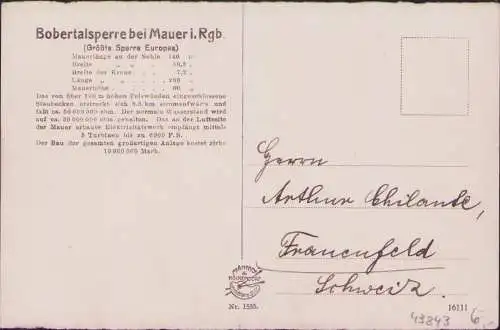 Bobertalsperre bei Mauer i. Rgb.
(Größte Sperre Europas)
Mauerlänge an der Sohle 140 m
Breite „ „ „ 50,2 „
Breite der Krone „ 7,2 „
Länge „ „ 280 „
Mauerhöhe 60 „
Das von über 100 m hohen Felswänden eingeschlossene
Staubecken erstreckt sich 8,5 km stromaufwärts und
faßt ca. 50 000 000 cbm. Der normale Wasserstand wird
auf ca. 20 000 000 cbm. gehalten. Das an der Luftseite
der Mauer erbaute Elektrizitätswerk empfängt mittels
5 Turbinen bis zu 6000 P.S.
Der Bau der gesamten großartigen Anlage kostet zirka
10 000 000 Mark.
Herrn
Arthur Chilante,
Frauenfeld
Schweiz.
Nr. 1535.
16111
43843